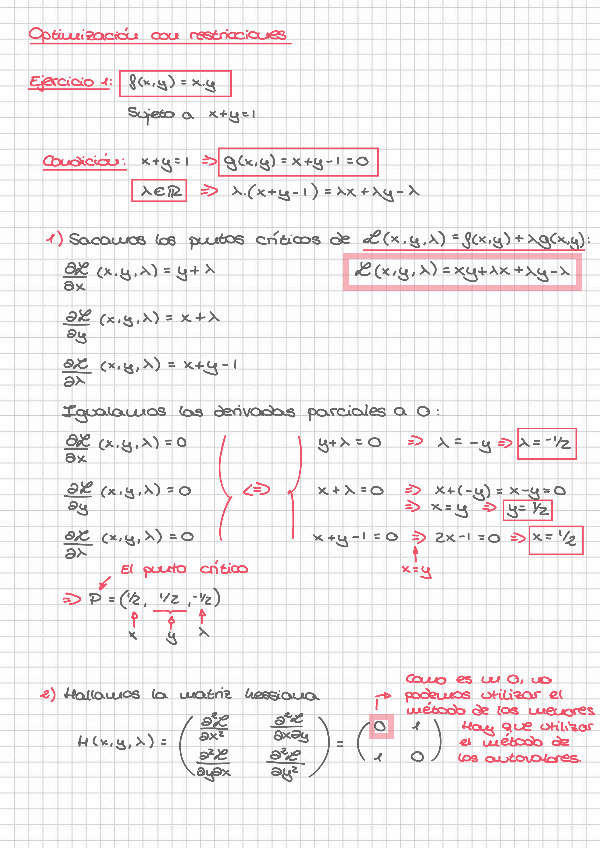 Optimización con restricciones
Ejercicio 1: f(x,y) = x.y
Sujeto a x+y=1
Condición: x+y=1 => g(x,y) = x+y-1 = 0
λ∈ℝ => λ.(x+y-1) = λx+λy-λ
1) Sacamos los puntos críticos de ℒ(x,y,λ) = f(x,y)+λg(x,y):
∂ℒ/∂x (x,y,λ) = y+λ ℒ(x,y,λ) = xy+λx+λy-λ
∂ℒ/∂y (x,y,λ) = x+λ
∂ℒ/∂λ (x,y,λ) = x+y-1
Igualamos las derivadas parciales a 0:
∂ℒ/∂x (x,y,λ) = 0 y+λ = 0 => λ = -y => λ = -1/2
∂ℒ/∂y (x,y,λ) = 0 <=> x+λ = 0 => x+(-y) = x-y = 0
=> x = y => y = 1/2
∂ℒ/∂λ (x,y,λ) = 0 x+y-1 = 0 => 2x-1 = 0 => x = 1/2
El punto crítico x=y
=> P = (1/2, 1/2, -1/2)
x y λ
2) Hallamos la matriz hessiana
Como es un 0, no
podemos utilizar el
método de los menores.
Hay que utilizar
el método de
los autovalores.
H(x,y,λ) = ( ∂²ℒ/∂x² ∂²ℒ/∂x∂y ) = ( 0 1 )
( ∂²ℒ/∂y∂x ∂²ℒ/∂y² ) ( 1 0 )